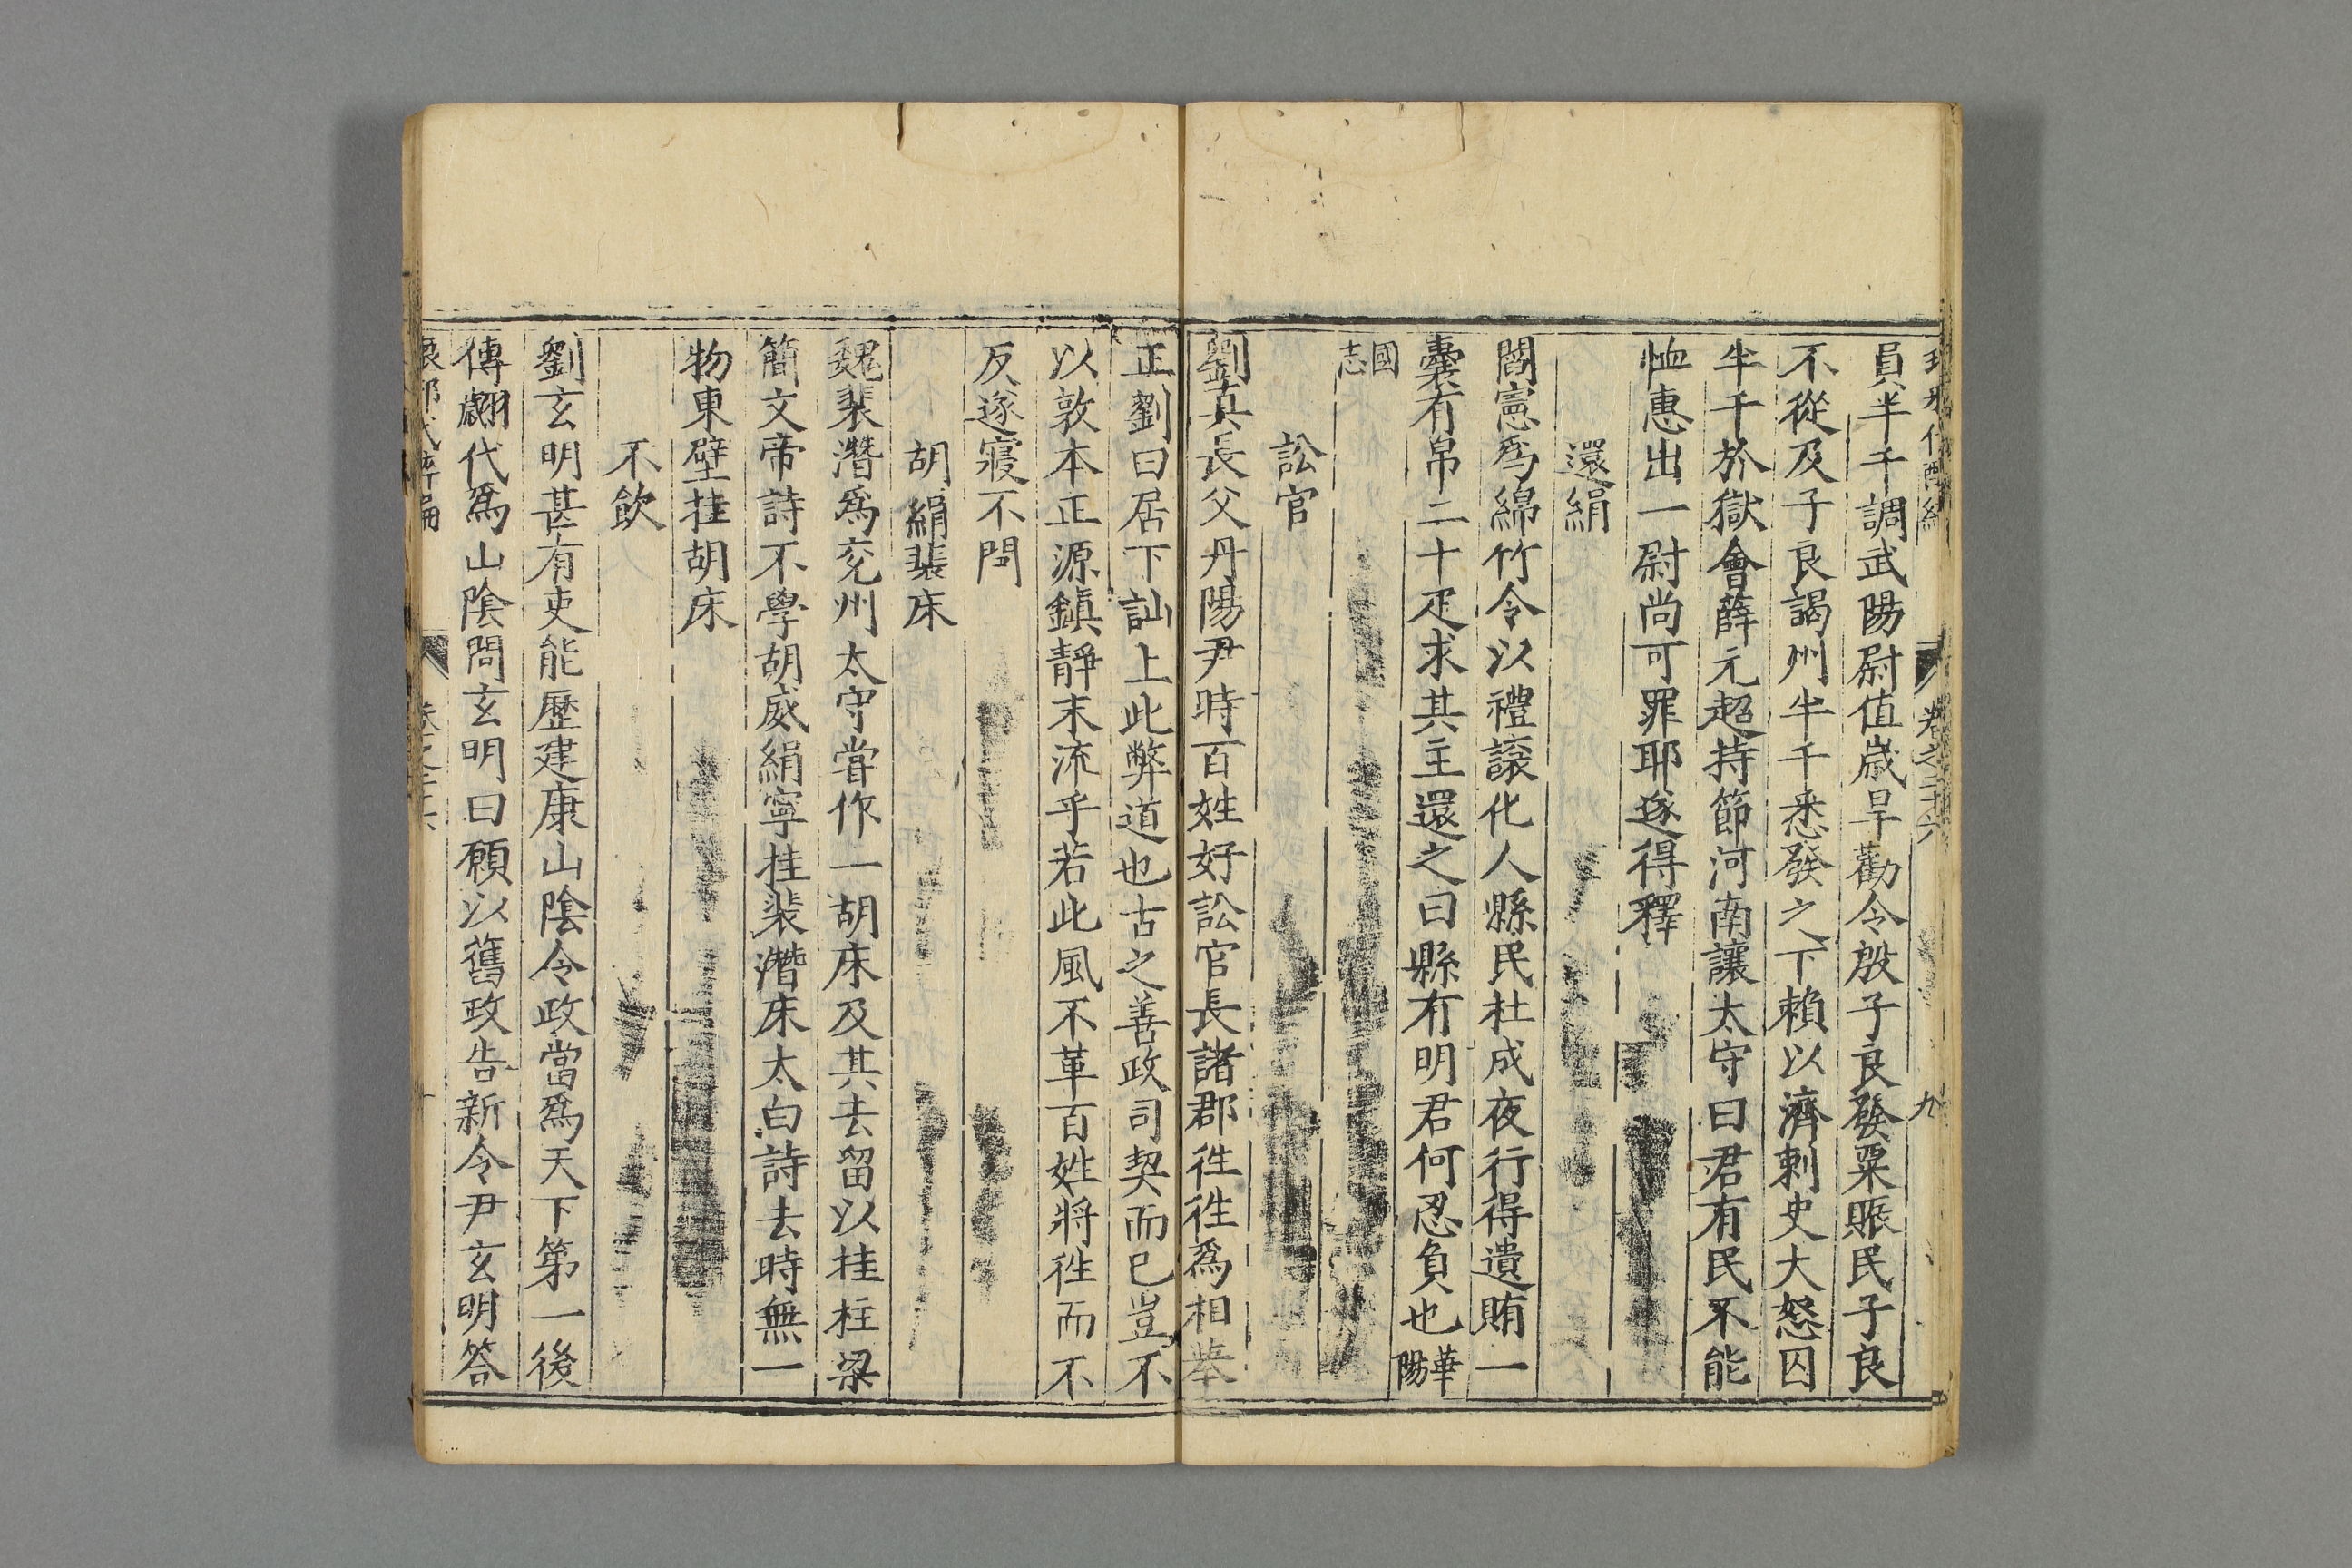 卷之二十六 九
員半千調武陽尉值歲旱勸令殷子良發粟賑民子良
不從及子良謁州半千悉發之下賴以濟刺史大怒囚
半千於獄會薛元超持節河南讓太守曰君有民不能
恤惠出一尉尚可罪耶遂得釋
還絹
閻憲爲綿竹令以禮讓化人縣民杜成夜行得遺賄一
囊有帛二十疋求其主還之曰縣有明君何忍負也華陽
國志
訟官
劉真長父丹陽尹時百姓好訟官長諸郡徃徃爲相舉
正劉曰居下訕上此弊道也古之善政司契而已豈不
以敦本正源鎮靜末流乎若此風不革百姓將徃而不
反遂寢不問
胡絹裴床
魏裴潛爲兖州太守甞作一胡床及其去留以挂柱梁
簡文帝詩不學胡威絹寧挂裴潛床太白詩去時無一
物東壁挂胡床
不飲
劉玄明甚有吏能歷建康山陰令政當爲天下第一後
傅翽代爲山陰問玄明曰願以舊政告新令尹玄明答